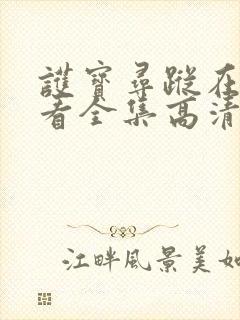 護寶尋蹤在
看全集高清
江畔風景美如